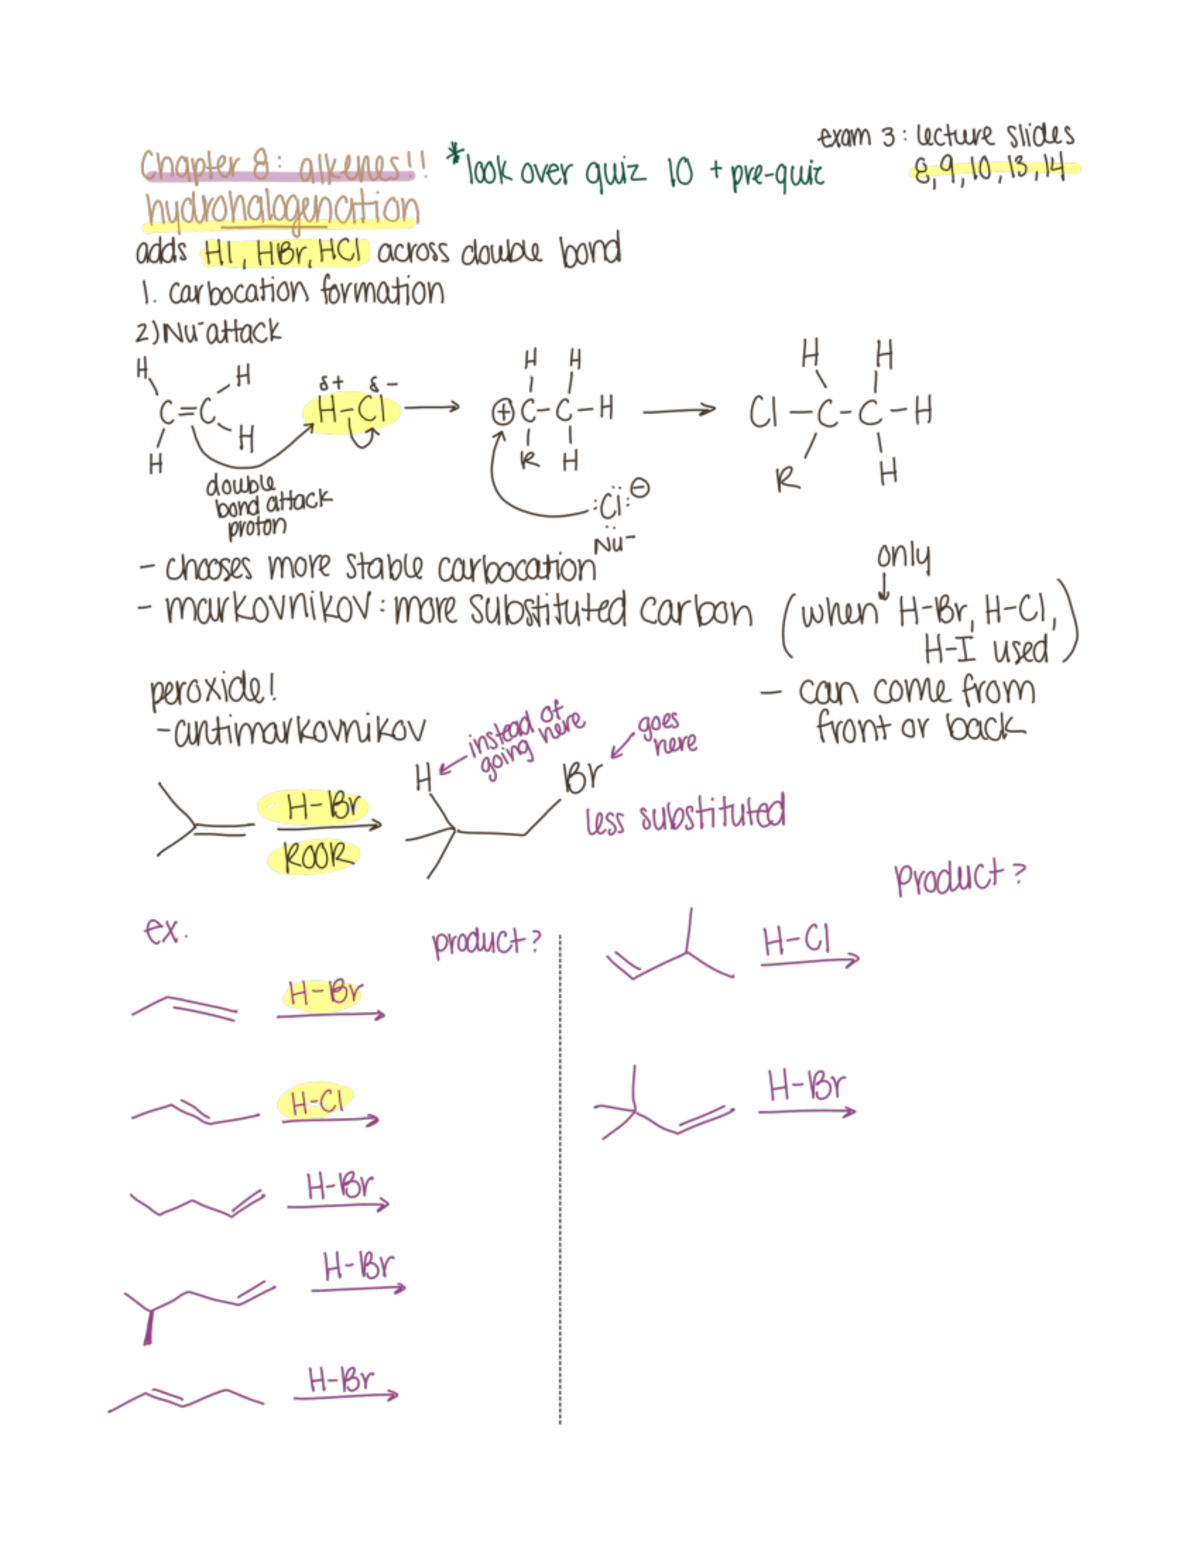 exam 3: lecture slides
8,9,10,13,14
Chapter 8: alkenes!! *look over quiz 10 + pre-quiz
hydrohalogenation
adds HI, HBr, HCl across double bond
1. carbocation formation
2) Nu⁻ attack
H H δ+ δ- H H H H
C=C H-Cl ⊕C-C-H Cl-C-C-H
H H R H R H
double
bond attack
proton
:Cl: ⊖
Nu⁻
- chooses more stable carbocation
only
- markovnikov: more substituted carbon (when H-Br, H-Cl,
H-I used)
- can come from
front or back
peroxide!
-antimarkovnikov
instead of
going here
goes
here
H Br
H-Br
ROOR
less substituted
ex. product?
H-Br
H-Cl
H-Br
H-Br
H-Br
Product?
H-Cl
H-Br